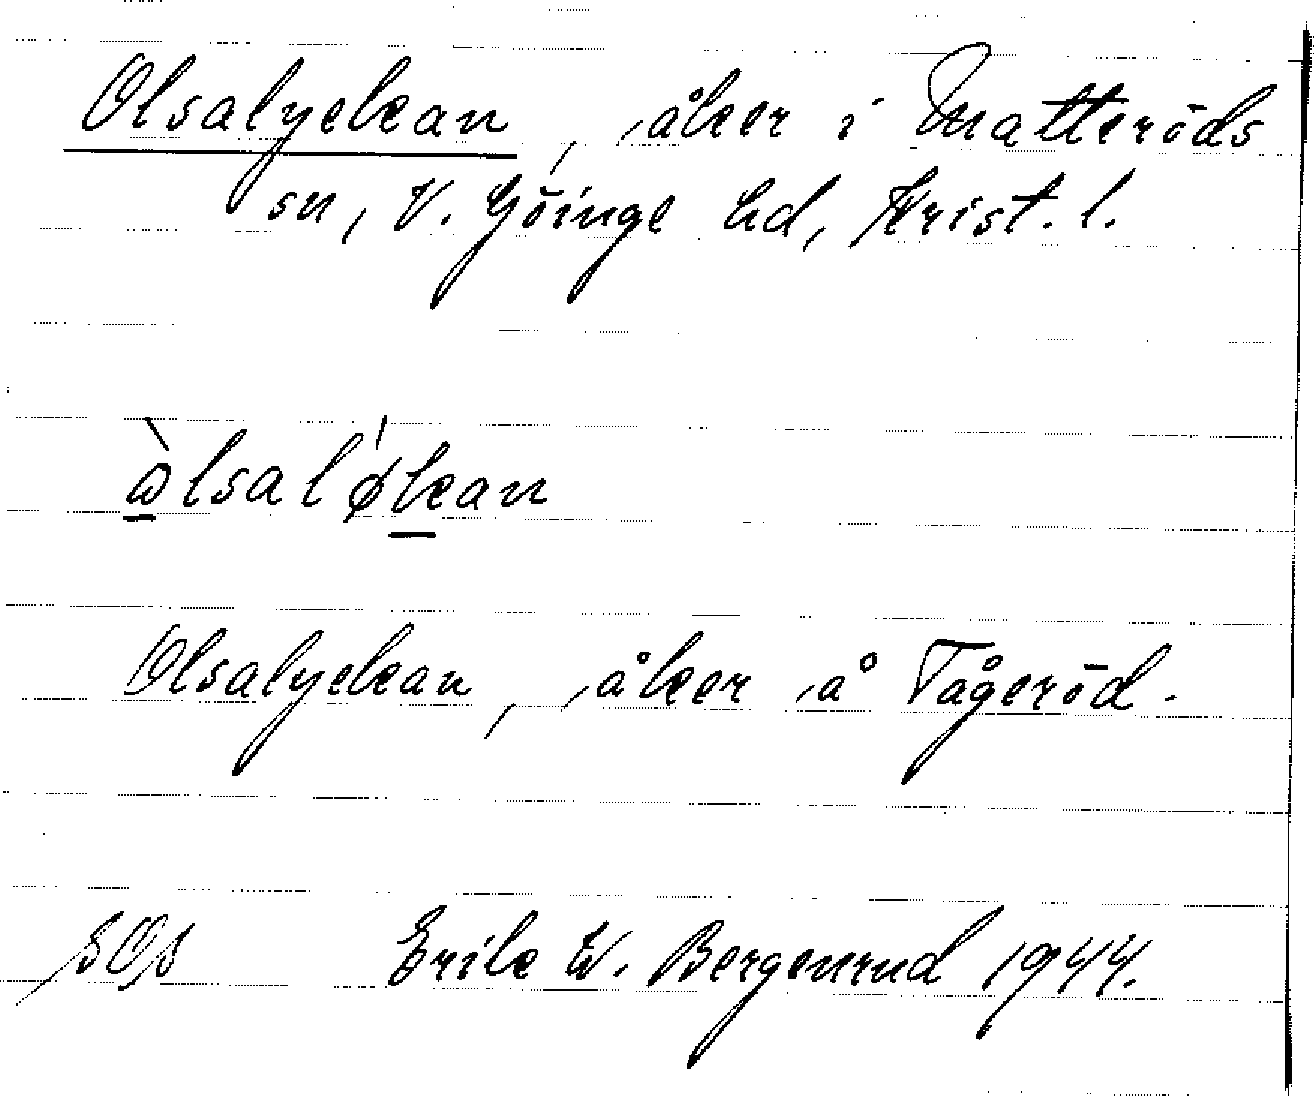 Olsalyckan, åker i Matteröds
sn, V. Göinge hd, Krist. l.
ὼlsalǿkan
Olsalyckan, åker å Tågeröd.
SOS Erik W. Bergenrud 1944.